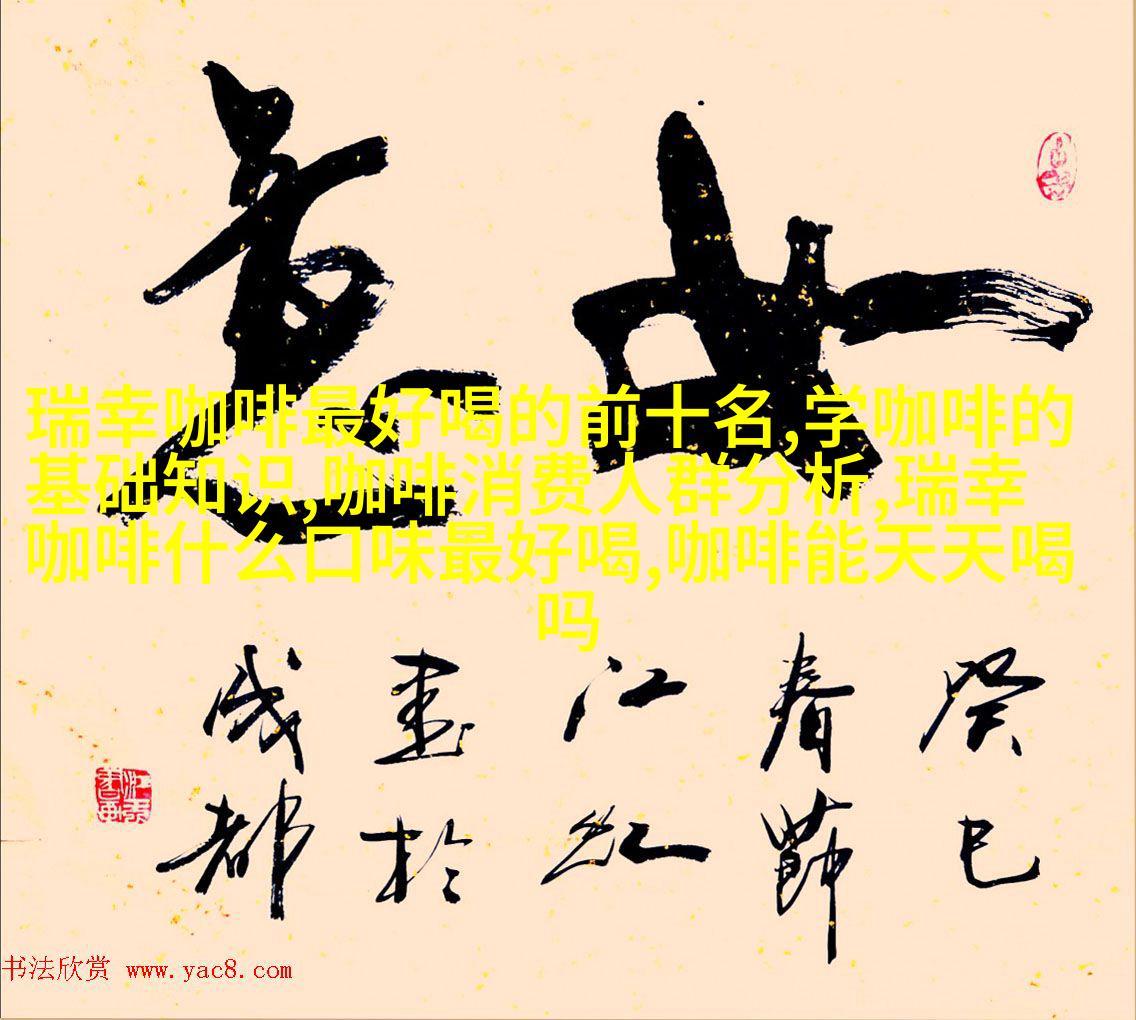 如意
瑞幸咖啡最好喝的前十名,学咖啡的
基础知识,咖啡消费人群分析,瑞幸
咖啡什么口味最好喝,咖啡能天天喝
吗
癸巳
春節
江红
書於
成都
书法欣赏 www.yac8.com